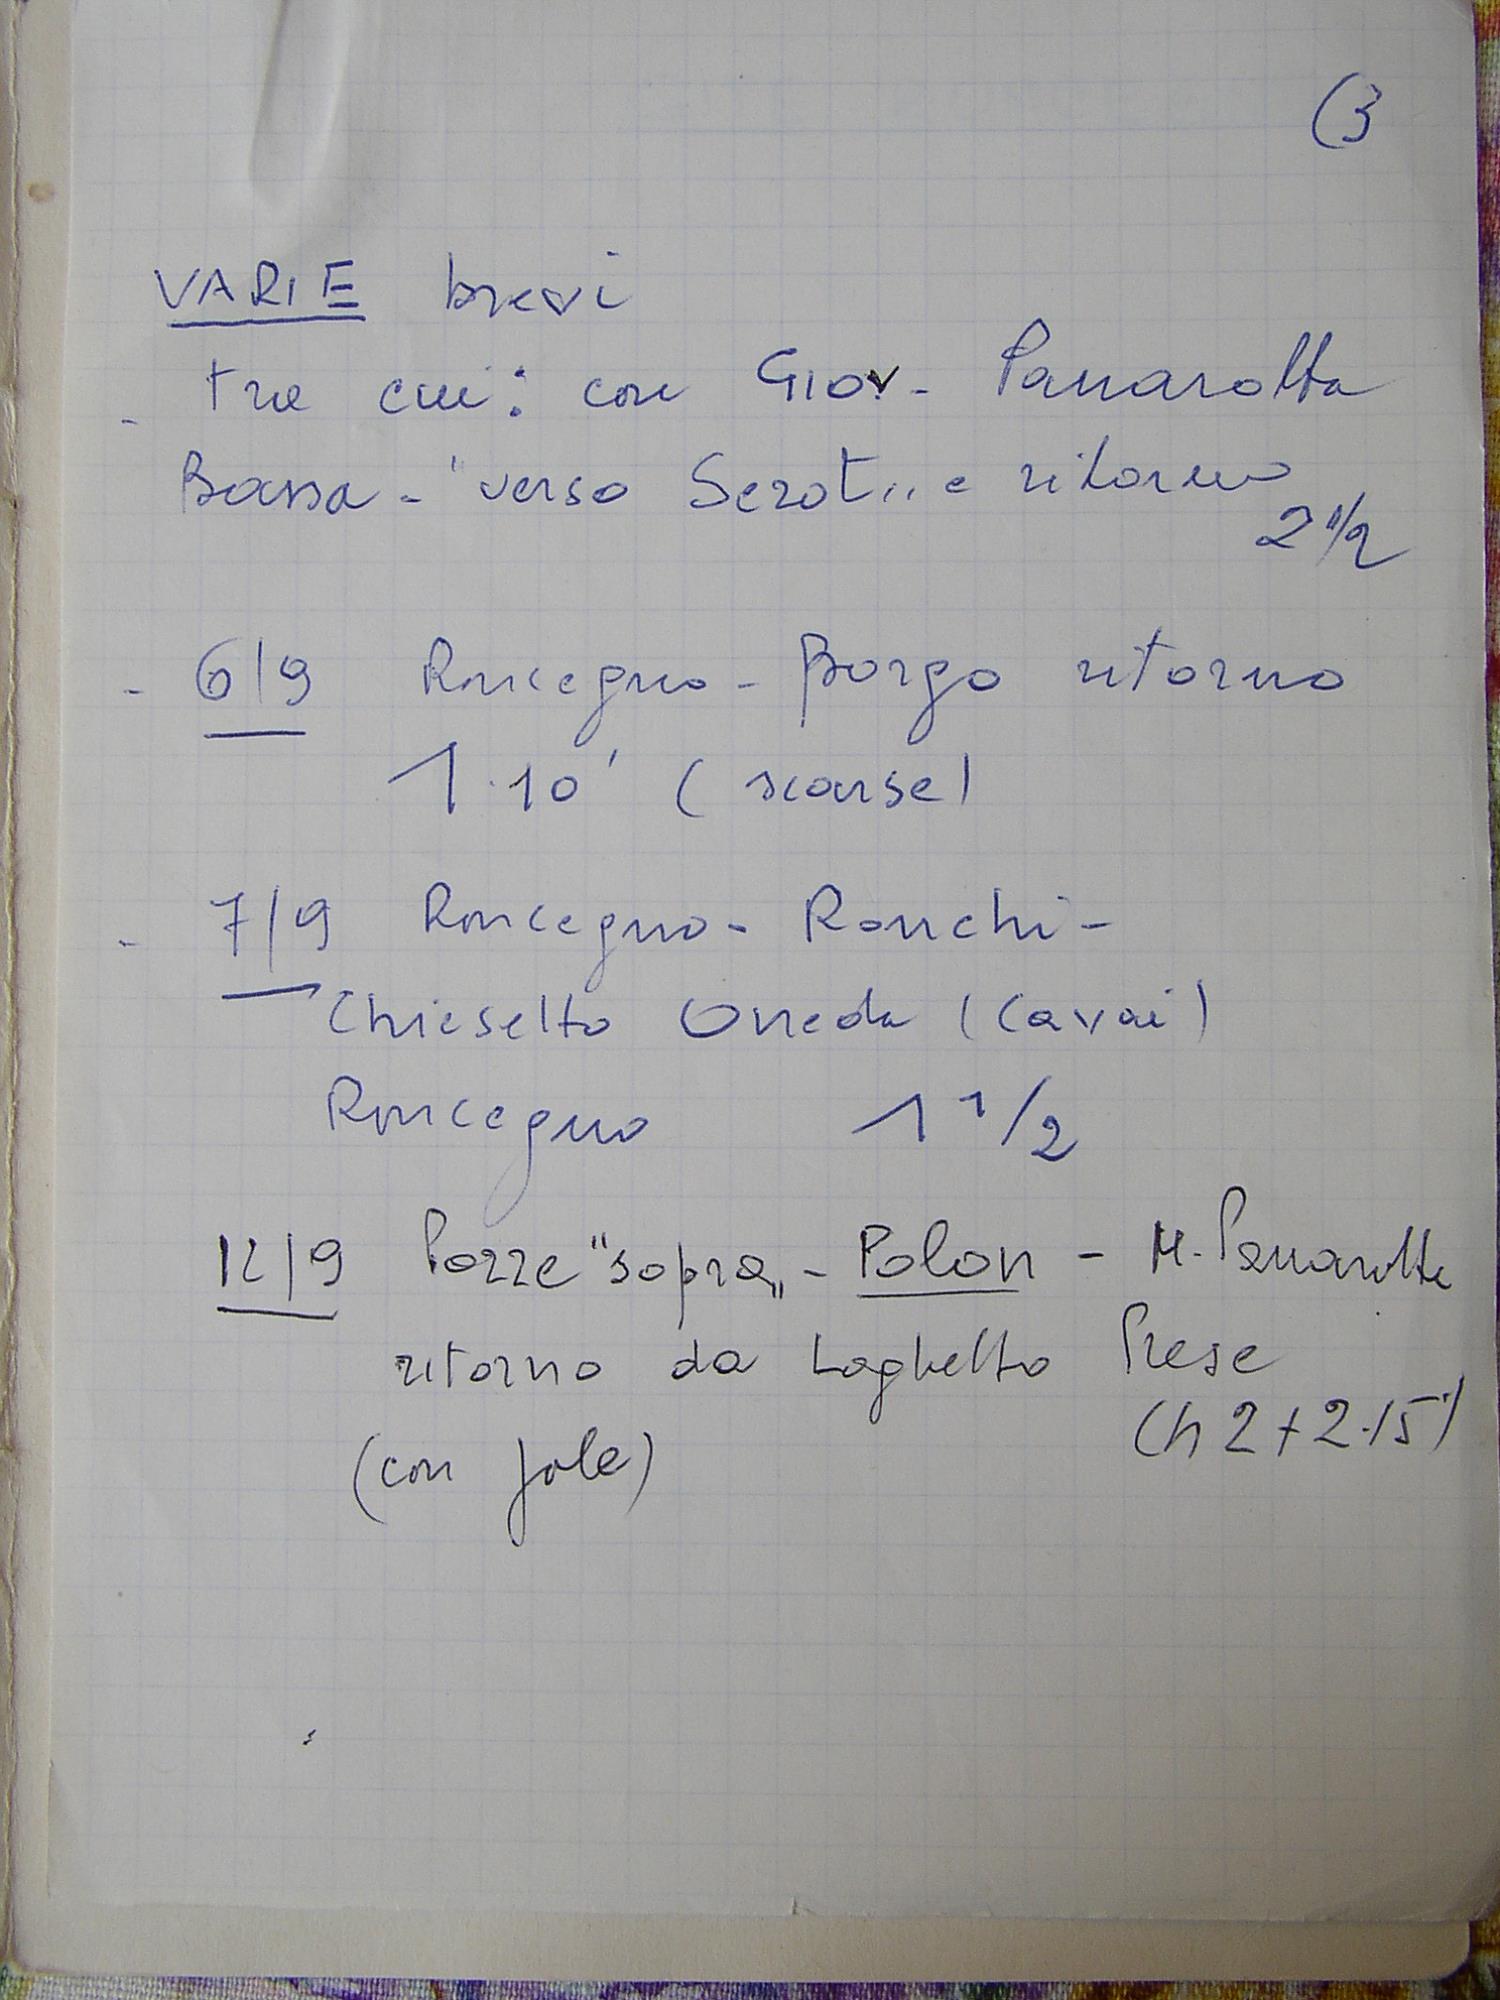 (3
VARIE brevi
- tre cui: con Giov. Panarotta
Bassa - "verso Serot" e ritorno
2 1/2
- 6/9 Roncegno - Borgo ritorno
1.10' (scarse)
- 7/9 Roncegno - Ronchi -
Chiesetta Oneda (Cavai)
Roncegno 1 1/2
12/9 Pozze "sopra" - Polon - M. Panarotta
ritorno da Laghetto Prese
(h 2 + 2.15')
(con Jole)